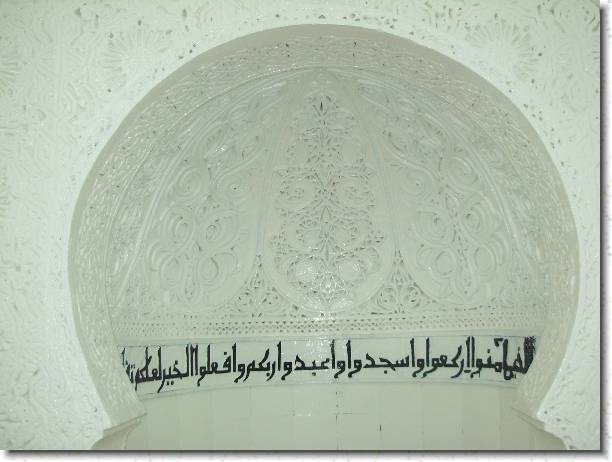 آمنوا اركعوا واسجدوا واعبدوا ربكم وافعلوا الخير لعلكم